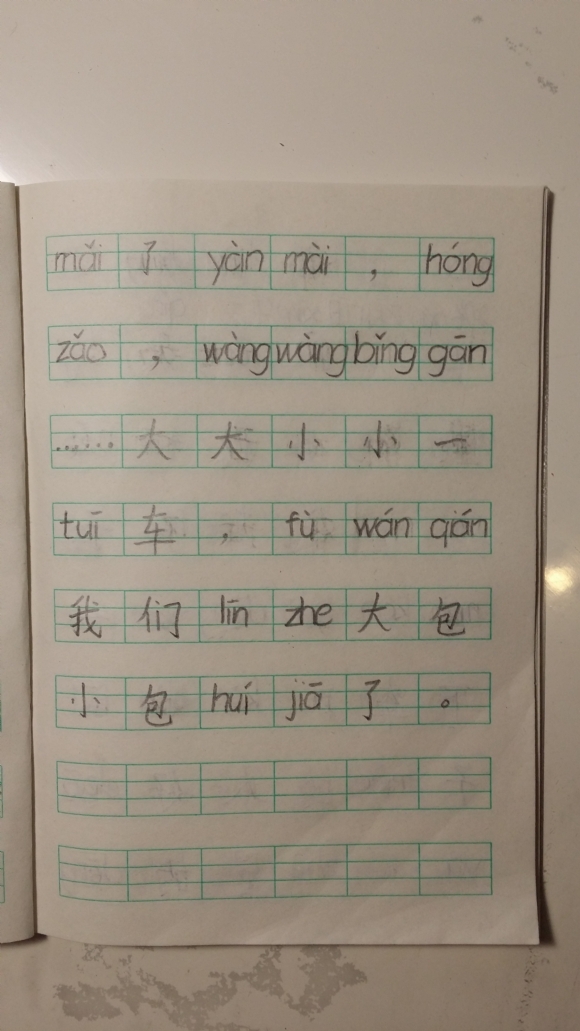 mǎi了yàn mài，hóng
zǎo，wàng wàng bǐng gān
……大大小小一
tuī车，fù wán qián
我们līn zhe大包
小包huí jiā了。